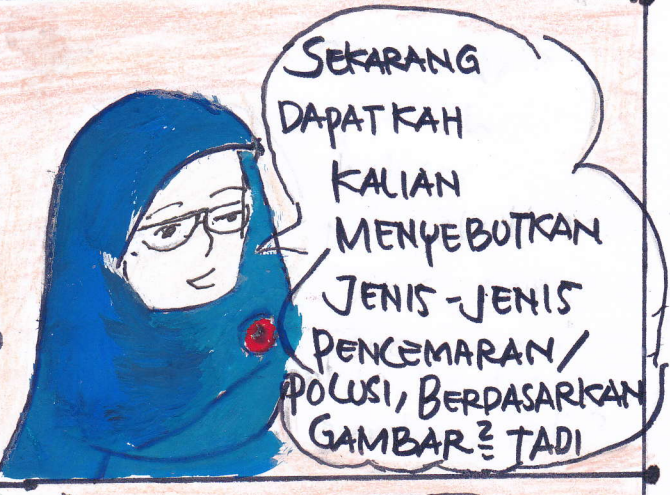 SEKARANG
DAPATKAH
KALIAN
MENYEBUTKAN
JENIS-JENIS
PENCEMARAN/
POLUSI, BERDASARKAN
GAMBAR2 TADI